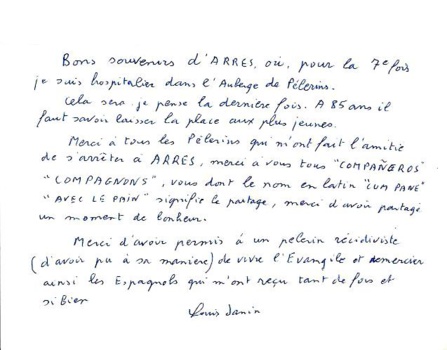 Bons souvenirs d'ARRES, où, pour la 7e fois
je suis hospitalier dans l'Auberge de Pélerins.
Cela sera je pense la dernière fois. A 85 ans il
faut savoir laisser la place aux plus jeunes.
Merci à tous les Pélerins qui m'ont fait l'amitié
de s'arrêter à ARRES, merci à vous tous "COMPAÑEROS"
"COMPAGNONS", vous dont le nom en latin "CUM PANE"
"AVEC LE PAIN" signifie le partage, merci d'avoir partagé
un moment de bonheur.
Merci d'avoir permis à un pelerin récidiviste
(d'avoir pu à sa manière) de vivre l'Evangile et remercier
ainsi les Espagnols qui m'ont reçu tant de fois et
si Bien
Louis Janin